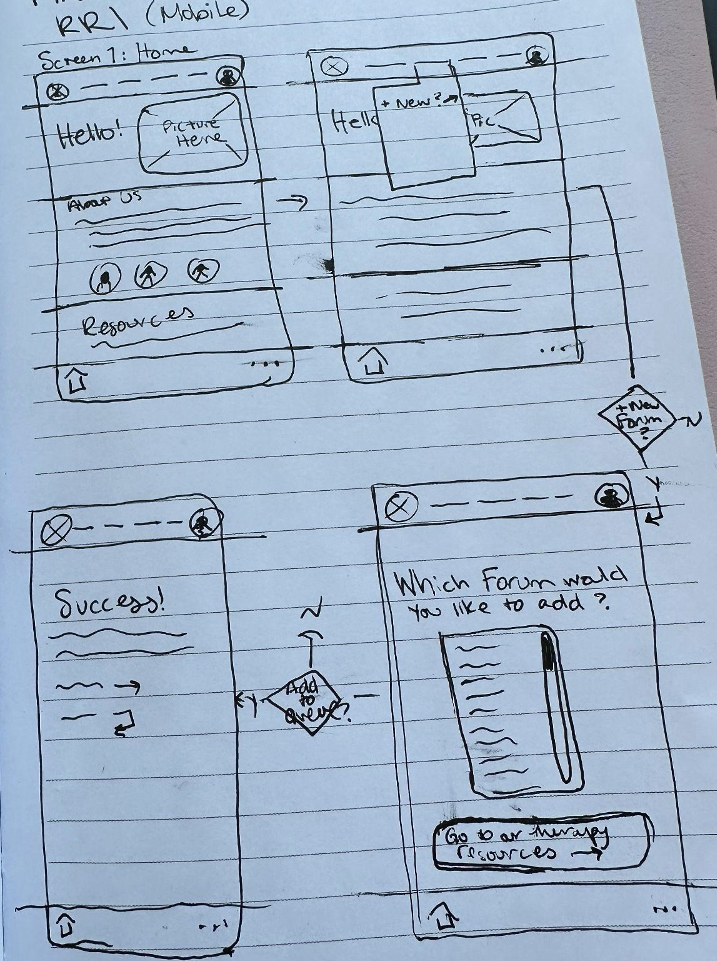 RR1 (Mobile)
Screen 1: Home
Hello!
Picture
Here
About US
Resources
+ New? →
Hello
Pic
+ New
Forum
?
N
Y
Which Forum would
you like to add?
Go to our therapy
resources →
Add
to
queue?
N
Y
Success!